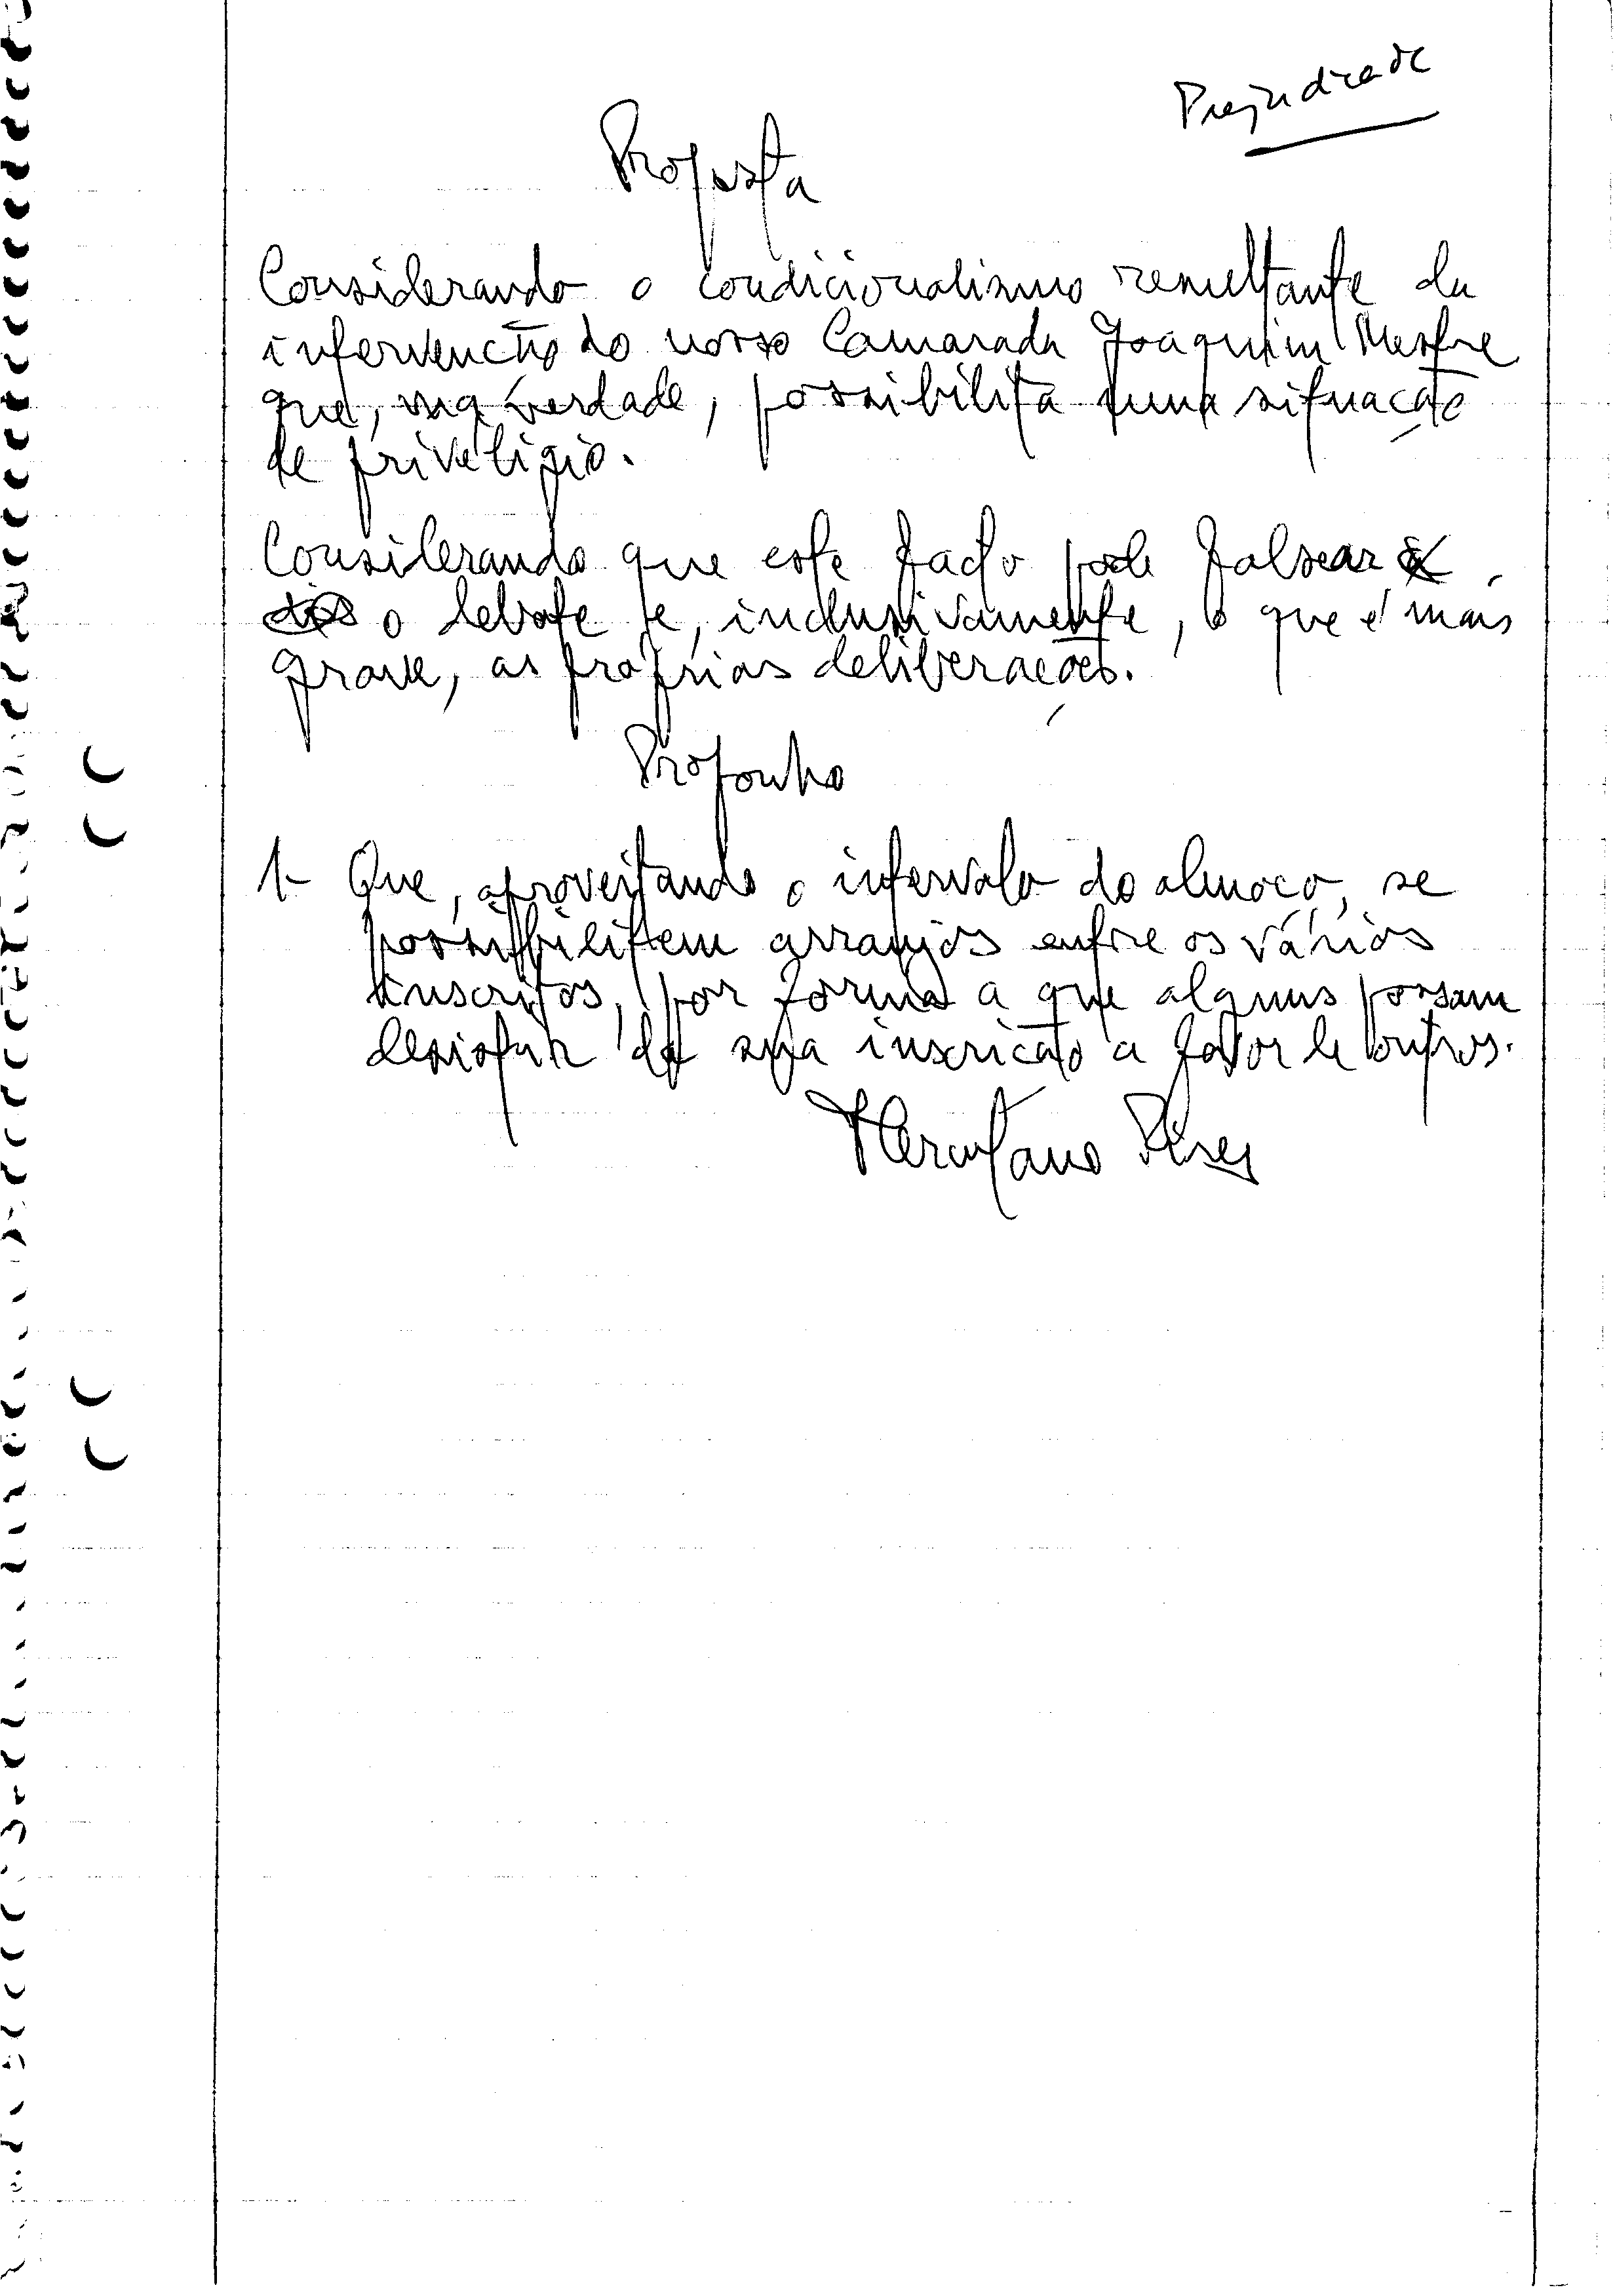 Prejudicada
Proposta
Considerando o condicionalismo resultante da
intervenção do nosso Camarada Joaquim Mestre
que, na verdade, possibilita uma situação
de priveligio.
Considerando que este facto pode falsear
o debate e, inclusivamente, o que é mais
grave, as próprias deliberações.
Proponho
1- Que, aproveitando o intervalo do almoço, se
possibilitem arranjos entre os vários
inscritos, por forma a que alguns possam
desistir da sua inscrição a favor de outros.
Herculano Pires